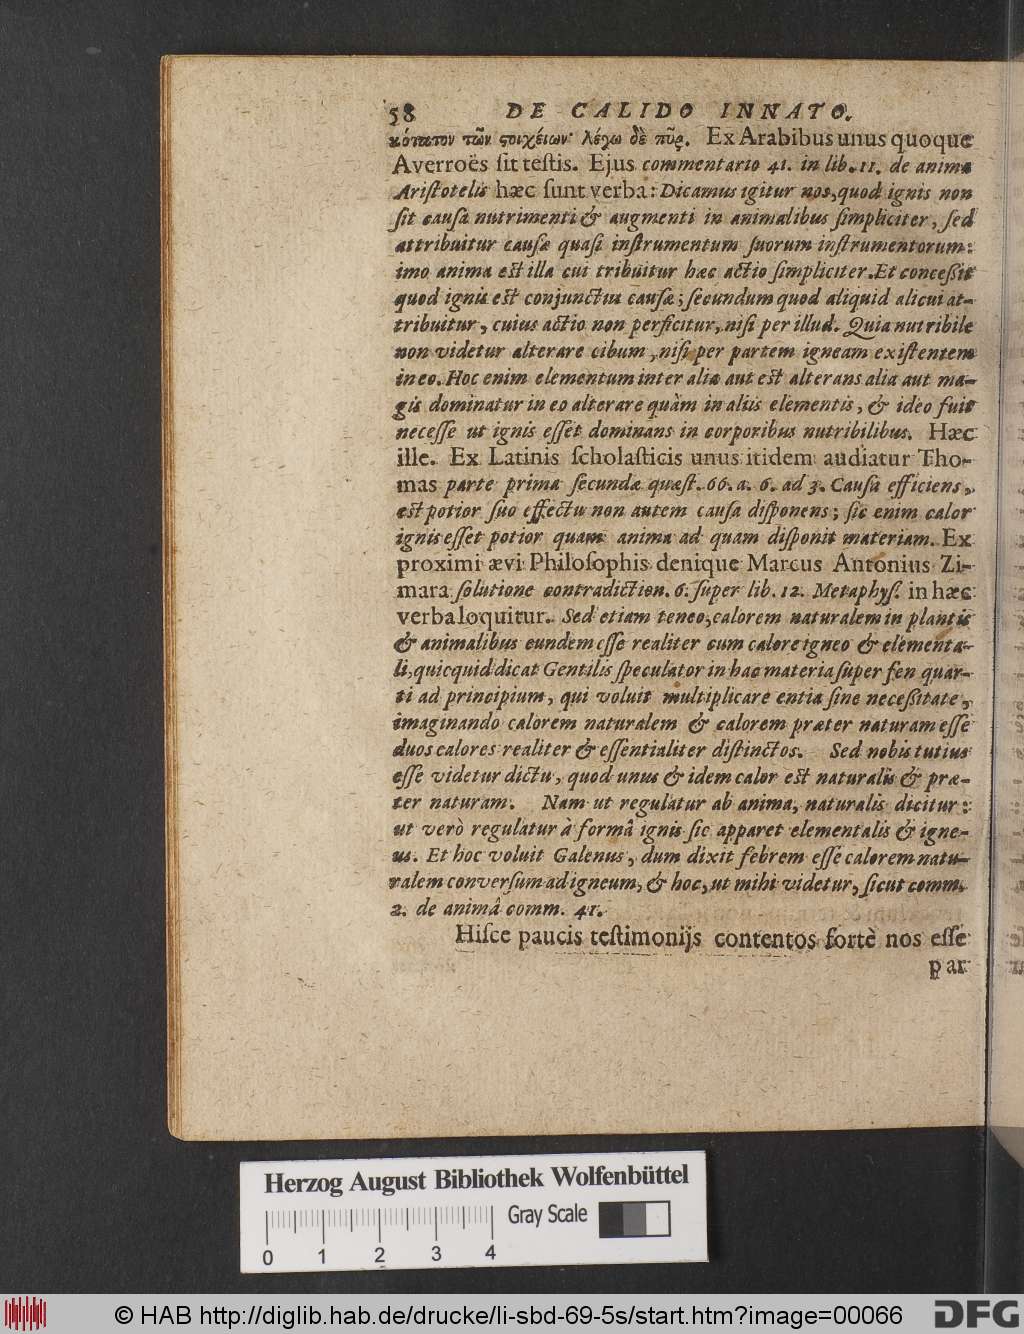 58 DE CALIDO INNATO.
κότατον τῶν ϛοιχείων· λέγω δὲ πῦρ. Ex Arabibus unus quoque
Averroës ſit teſtis. Ejus commentario 41. in lib. 11. de anima
Ariſtotelis hæc ſunt verba: Dicamus igitur nos, quod ignis non
ſit cauſa nutrimenti & augmenti in animalibus ſimpliciter, ſed
attribuitur cauſæ quaſi inſtrumentum ſuorum inſtrumentorum:
imo anima eſt illa cui tribuitur hæc actio ſimpliciter. Et conceßit
quod ignis eſt conjunctus cauſæ; ſecundum quod aliquid alicui at-
tribuitur, cuius actio non perficitur, niſi per illud. Quia nutribile
non videtur alterare cibum, niſi per partem igneam exiſtentem
in eo. Hoc enim elementum inter alia aut eſt alterans alia aut ma-
gis dominatur in eo alterare quàm in aliis elementis, & ideo fuit
neceſſe ut ignis eſſet dominans in corporibus nutribilibus. Hæc
ille. Ex Latinis ſcholaſticis unus itidem audiatur Tho-
mas parte prima ſecundæ quæſt. 66. a. 6. ad 3. Cauſa efficiens,
eſt potior ſuo effectu non autem cauſa diſponens; ſic enim calor
ignis eſſet potior quam anima ad quam diſponit materiam. Ex
proximi ævi Philoſophis denique Marcus Antonius Zi-
mara ſolutione contradiction. 6. ſuper lib. 12. Metaphyſ. in hæc
verba loquitur. Sed etiam teneo, calorem naturalem in plantis
& animalibus eundem eſſe realiter cum calore igneo & elementa-
li, quicquid dicat Gentilis ſpeculator in hac materia ſuper fen quar-
ti ad principium, qui voluit multiplicare entia ſine neceßitate,
imaginando calorem naturalem & calorem præter naturam eſſe
duos calores realiter & eſſentialiter diſtinctos. Sed nobis tutius
eſſe videtur dictu, quod unus & idem calor eſt naturalis & præ-
ter naturam. Nam ut regulatur ab anima, naturalis dicitur:
ut verò regulatur à formâ ignis ſic apparet elementalis & igne-
us. Et hoc voluit Galenus, dum dixit febrem eſſe calorem natu-
ralem converſum ad igneum, & hoc, ut mihi videtur, ſicut comm.
2. de animâ comm. 41.
Hiſce paucis teſtimonijs contentos fortè nos eſſe
par
Herzog August Bibliothek Wolfenbüttel
Gray Scale
0 1 2 3 4
© HAB http://diglib.hab.de/drucke/li-sbd-69-5s/start.htm?image=00066
DFG